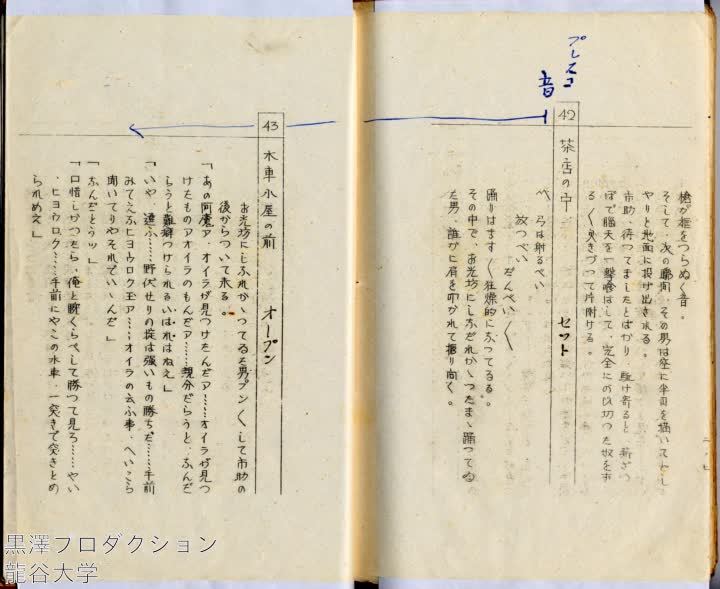 プレスコ
音
槍が框をつらぬく音。
そして、次の瞬間、その男は空に半円を描いて
やりと地面に投げ出される。
市助、待ってましたとばかり、駈け寄ると、薪ざつ
ぽで脳天を一撃喰はして、完全に
る〳〵曳きづつて片附ける。
42
茶店の中
セット
へ 弓は射るべい
放つべい
だんべい〳〵
踊りはます〳〵狂燥的になつてゐる。
その中で、お光坊にしなだれかゝつたまゝ踊つてゐ
た男、誰かに肩を叩かれて振り向く。
43
水車小屋の前
オープン
お光坊にしなだれかゝつてゐた男プン〳〵して市助の
後からついて来る。
「あの阿魔ァ、オイラが見つけたんだァ……オイラが見つ
けたものアオイラのもんだァ……親分だらうと、ふんだ
らうと難癖つけられるいはれはねえ」
「いや、違ふ……野伏せりの掟は強いもの勝ちだ……手前
みてえなヒヨウロク玉ァ……オイラの云ふ事、へいこら
聞いてりやそれでいゝんだ」
「なんだとうッ」
「口惜しかつたら、俺と腕くらべして勝つて見ろ……やい
、ヒヨウロク……手前にやこの水車、一突きで突きとめ
られめえ」
黒澤プロダクション
龍谷大学